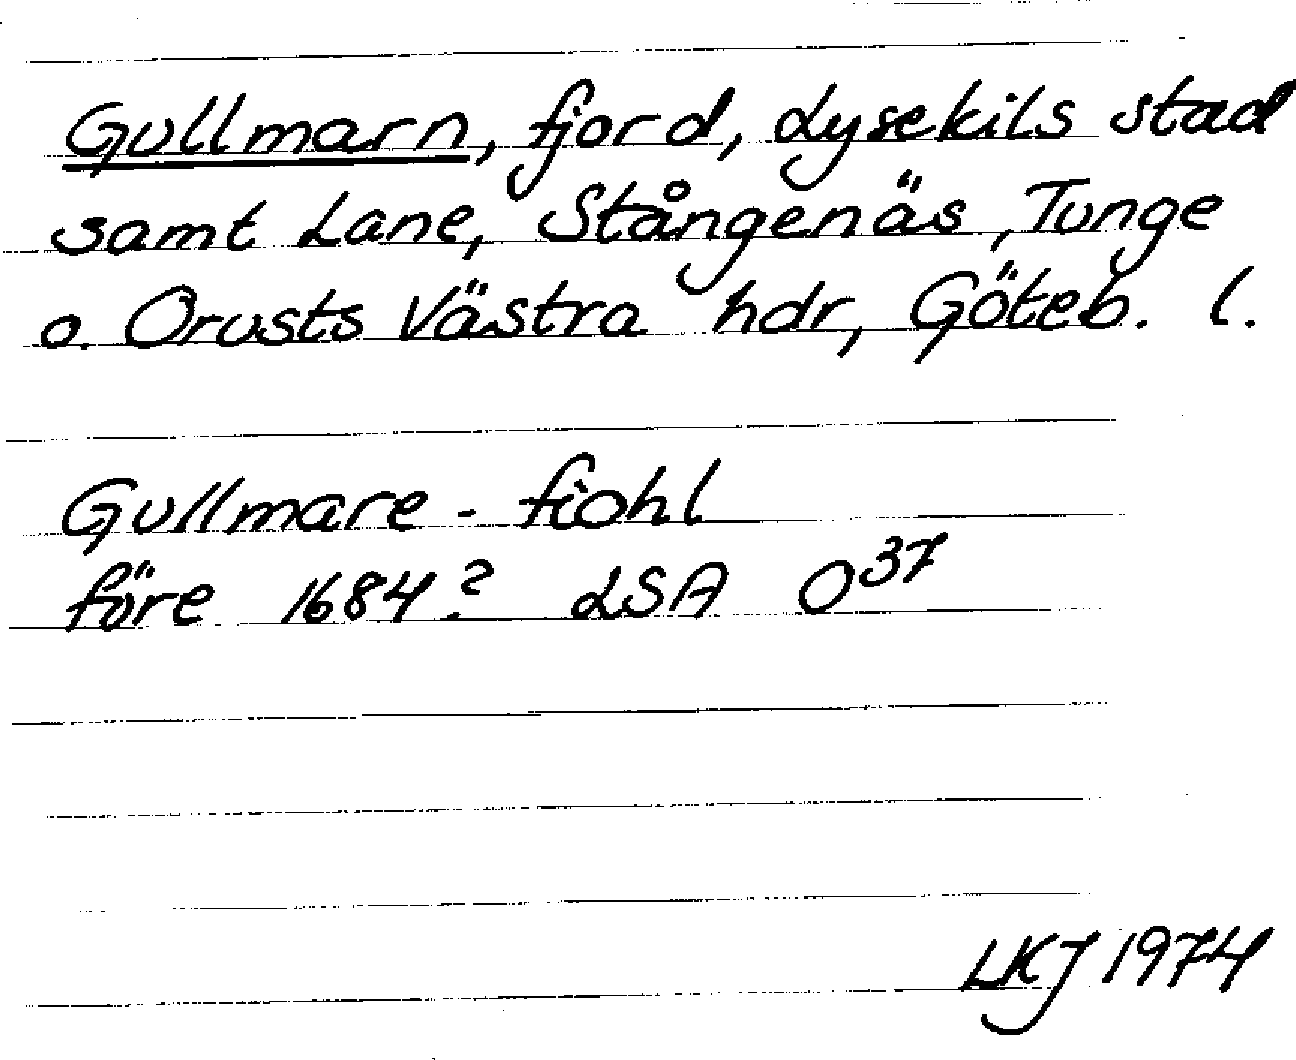 Gullmarn, fjord, Lysekils stad
samt Lane, Stångenäs, Tunge
o. Orusts Västra hdr, Göteb. l.
Gullmare - fiohl
före 1684? LSA O37
LKJ 1974